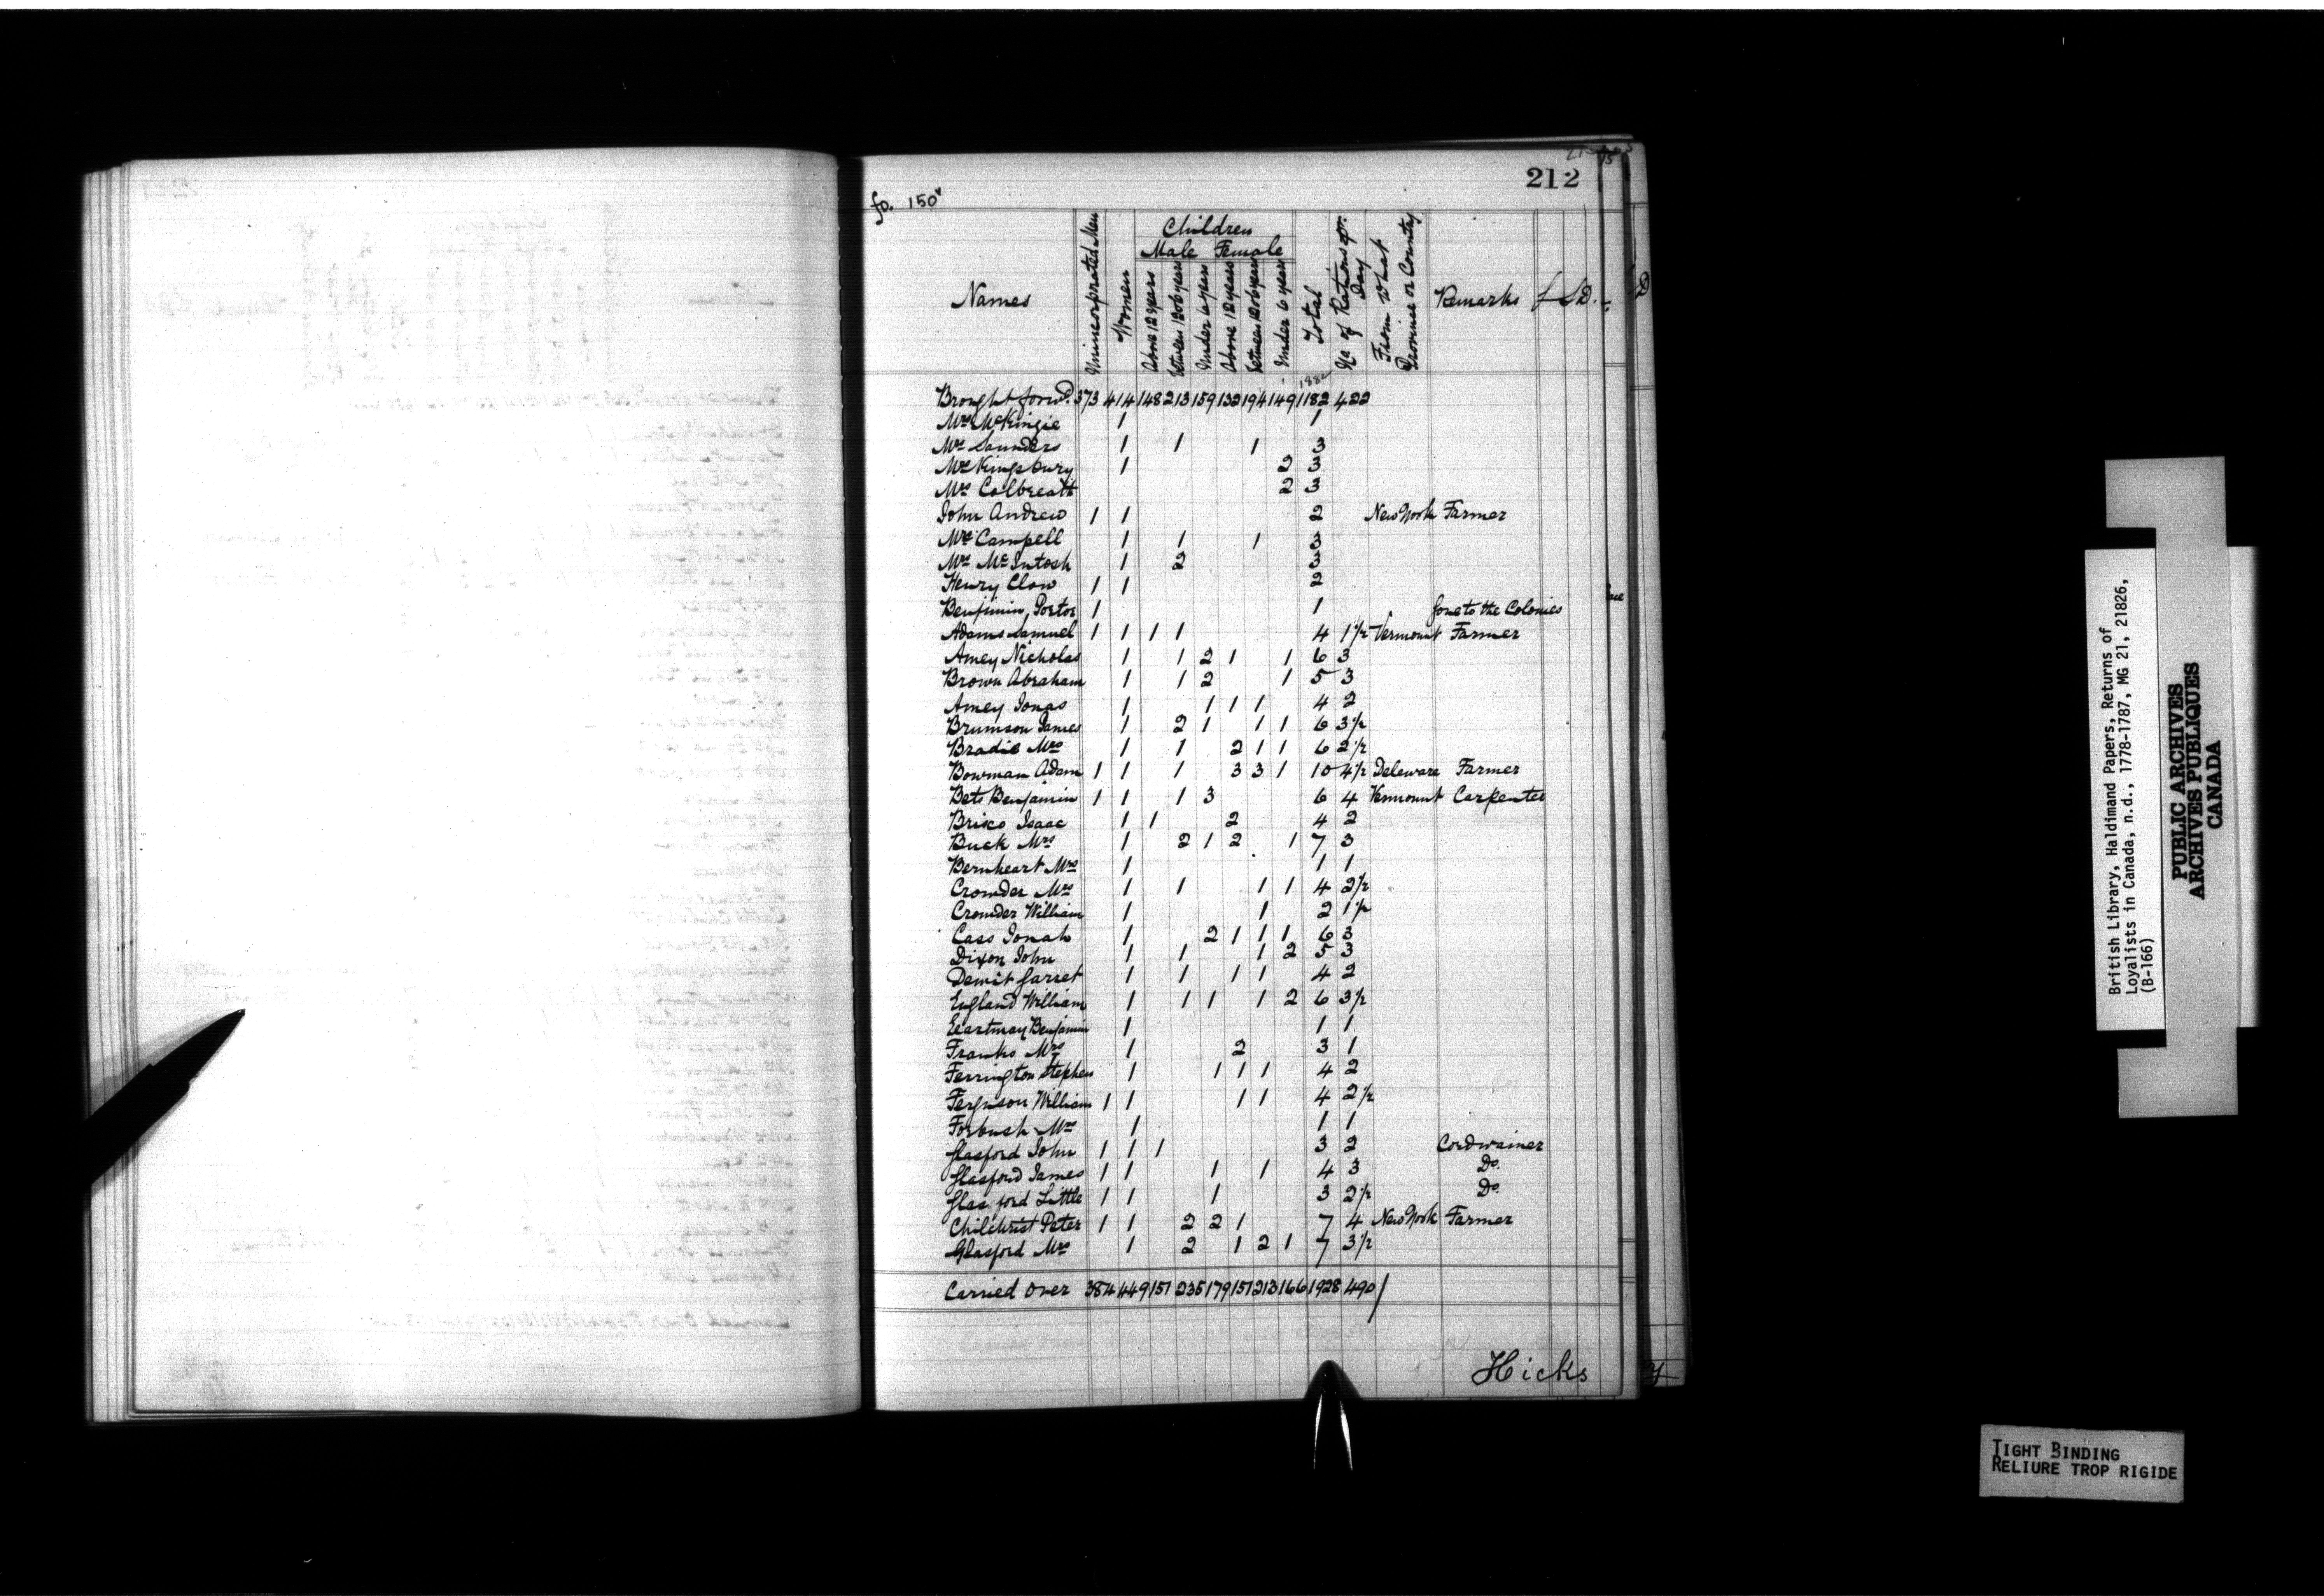 212
fo. 150v
Children
Male Female
Names Unincorporated Men Women Above 12 years between 12 & 6 years Under 6 years Above 12 years between 12 & 6 years Under 6 years Total No of Rations pr. Day From What Province or Country Remarks £ S D.
1882
Brought forwd. 373 414 148 213 159 132 194 149 1182 422
Mrs McKingie 1 1
Mrs Saunders 1 1 1 3
Mrs Kingsbury 1 2 3
Mrs Colbreath 2 3
John Andrew 1 1 2 New York Farmer
Mrs Campell 1 1 1 3
Mrs McIntosh 1 2 3
Henry Clow 1 1 2
Benjimin, Portor 1 1 Gone to the Colonies
Adams Samuel 1 1 1 1 4 1 1/2 Vermount Farmer
Amey Nicholas 1 1 2 1 1 6 3
Brown Abraham 1 1 2 1 5 3
Amey Jonas 1 1 1 1 4 2
Brumson James 1 2 1 1 1 6 3 1/2
Bradie Mrs 1 1 2 1 1 6 2 1/2
Bowman Adam 1 1 1 3 3 1 10 4 1/2 Deleware Farmer
Bets Benjamin 1 1 1 3 6 4 Vermount Carpenter
Brisco Isaac 1 1 2 4 2
Buck Mrs 1 2 1 2 1 7 3
Bernheart Mrs 1 1 1
Crowder Mrs 1 1 1 1 4 2 1/2
Crowder William 1 1 2 1 1/2
Cass Jonah 1 2 1 1 1 6 3
Dixon John 1 1 1 2 5 3
Demit Garret 1 1 1 1 4 2
England William 1 1 1 1 2 6 3 1/2
Eeartmay Benjamin 1 1 1
Franks Mrs 1 2 3 1
Ferrington Stephen 1 1 1 1 4 2
Ferguson William 1 1 1 1 4 2 1/2
Forbush Mrs 1 1 1
Glasford John 1 1 1 3 2 Cordwainer
Glasford James 1 1 1 1 4 3 Do.
Glasford Little 1 1 1 3 2 1/2 Do.
Chilchrist Peter 1 1 2 2 1 7 4 New York Farmer
Glasford Mrs 1 2 1 2 1 7 3 1/2
Carried Over 384 449 151 235 179 151 213 166 1928 490
Hicks
British Library, Haldimand Papers, Returns of
Loyalists in Canada, n.d., 1778-1787, MG 21, 21826,
(B-166)
PUBLIC ARCHIVES
ARCHIVES PUBLIQUES
CANADA
TIGHT BINDING
RELIURE TROP RIGIDE